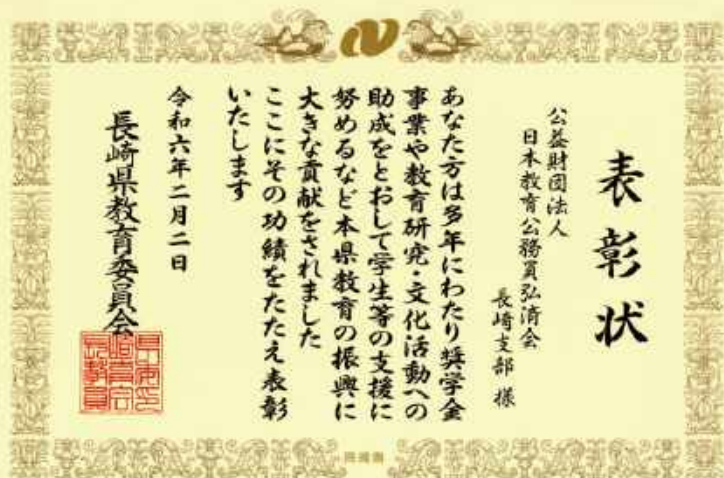 表彰状
公益財団法人
日本教育公務員弘済会
長崎支部 様
あなた方は多年にわたり奨学金
事業や教育研究・文化活動への
助成をとおして学生等の支援に
努めるなど本県教育の振興に
大きな貢献をされました
ここにその功績をたたえ表彰
いたします
令和六年二月二日
長崎県教育委員会